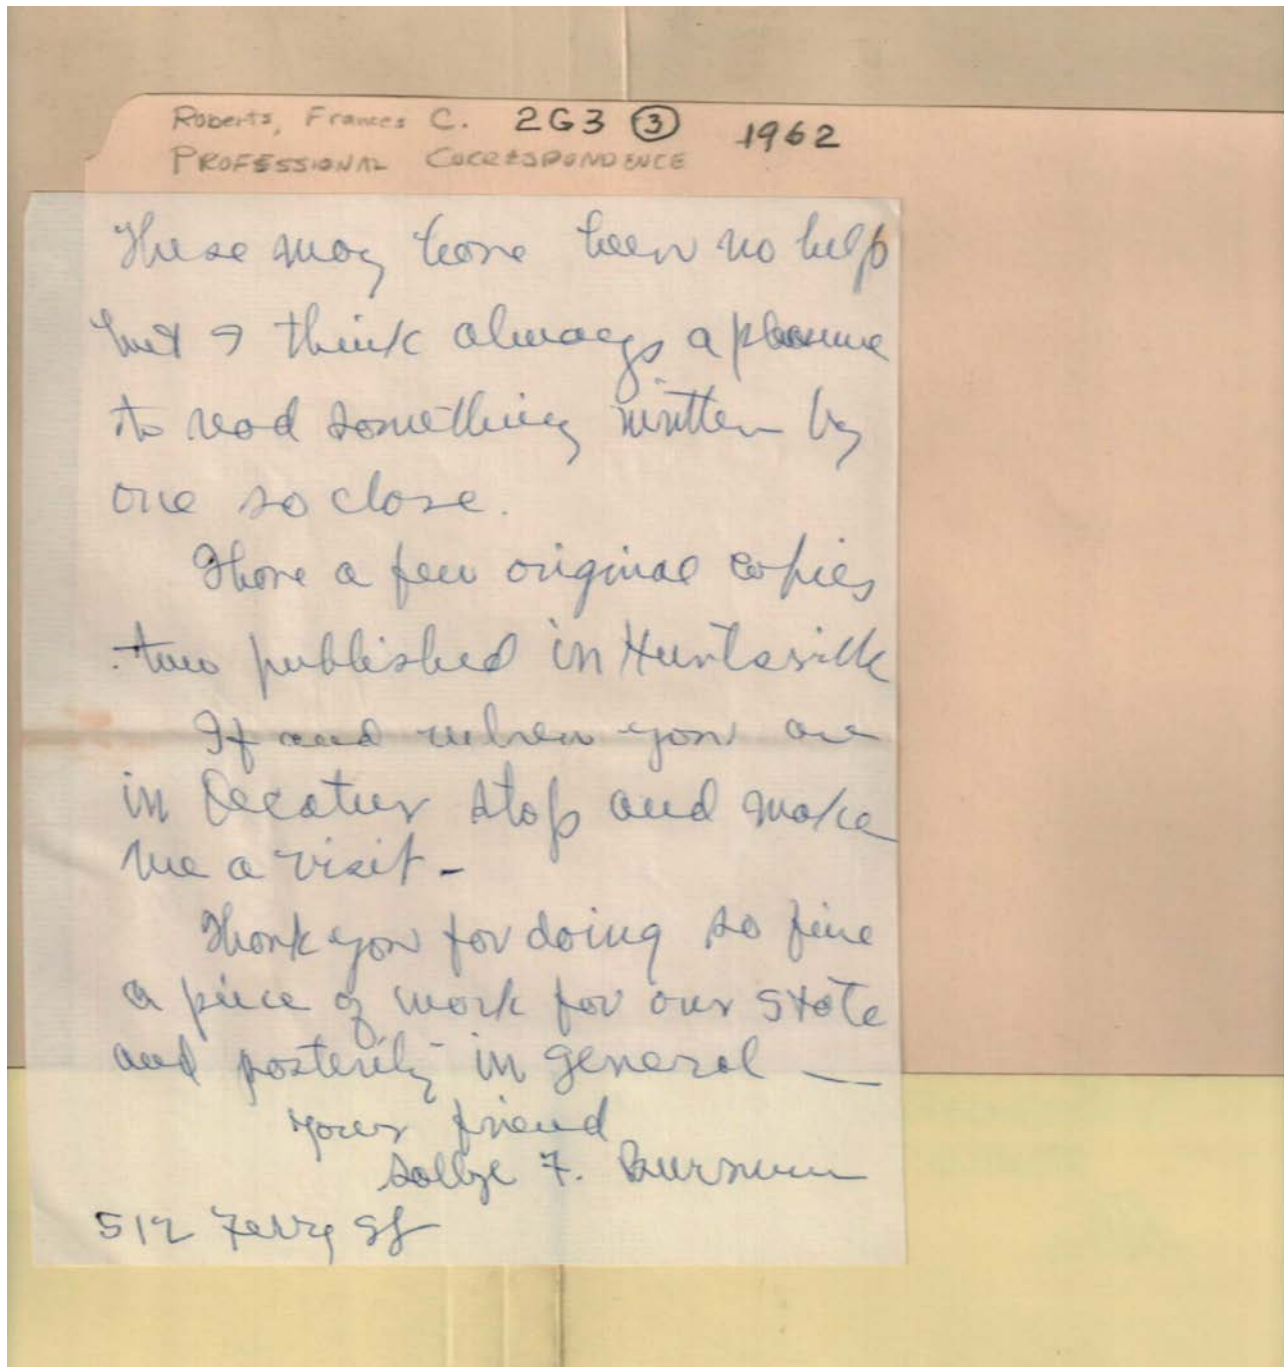 Roberts, Frances C. 2G3 3 1962
PROFESSIONAL CORRESPONDENCE
These may have been no help
but I think always a pleasure
to read something written by
one so close.
I have a few original copies
two published in Huntsville
If and when you are
in Decatur stop and make
me a visit -
Thank you for doing so fine
a piece of work for our state
and posterity in general —
Your friend
F.
512 Ferry St